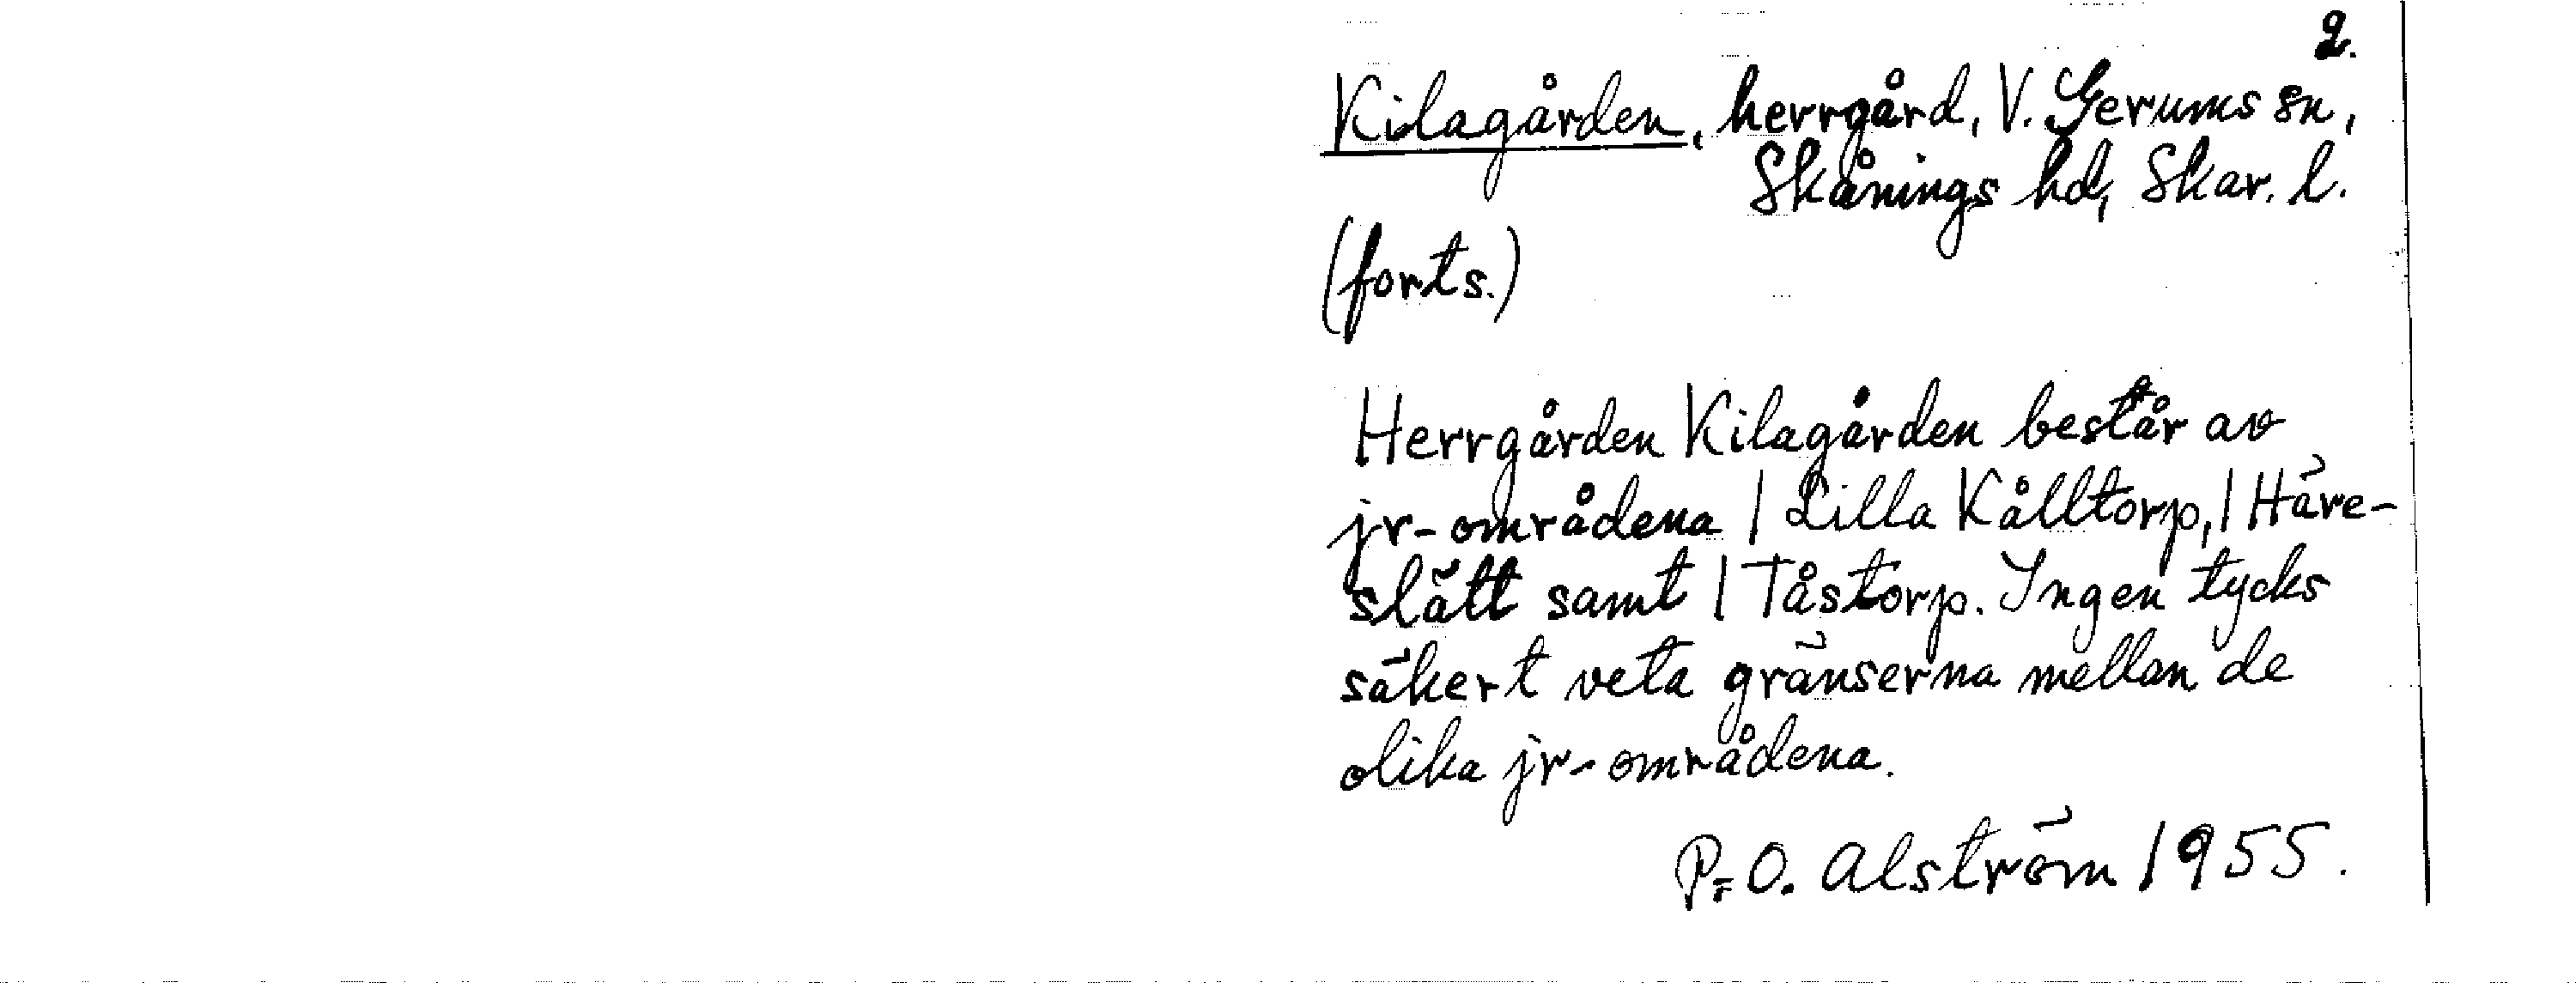 2.
Kilagården, herrgård, V. Gerums sn,
Skånings hd, Skar. l.
(forts.)
Herrgården Kilagården består av
jr-områdena | Lilla Kålltorp, | Häre-
slätt samt | Tåstorp. Ingen tycks
säkert veta gränserna mellan de
olika jr-områdena.
P.-O. Alström 1955.